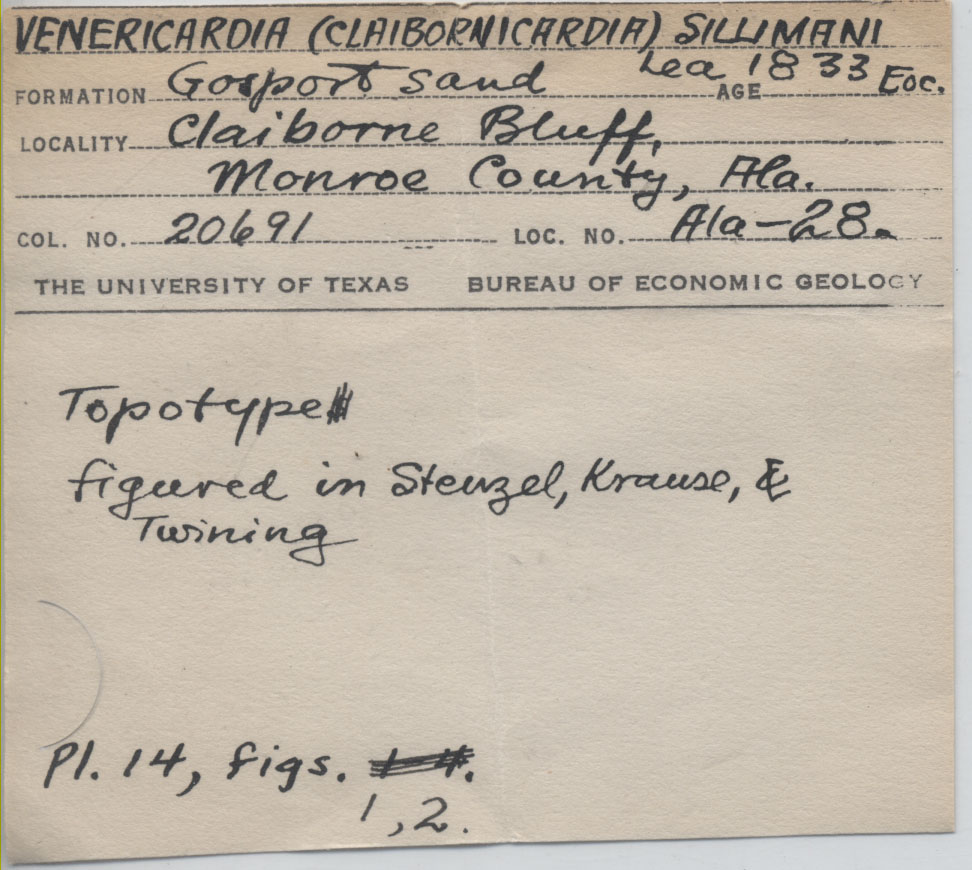 VENERICARDIA (CLAIBORNICARDIA) SILLIMANI
Lea 1833
FORMATION Gosport sand AGE Eoc.
LOCALITY Claiborne Bluff,
Monroe County, Ala.
COL. NO. 20691 LOC. NO. Ala-28.
THE UNIVERSITY OF TEXAS BUREAU OF ECONOMIC GEOLOGY
Topotype
figured in Stenzel, Krause, &
Twining
Pl. 14, figs.
1, 2.